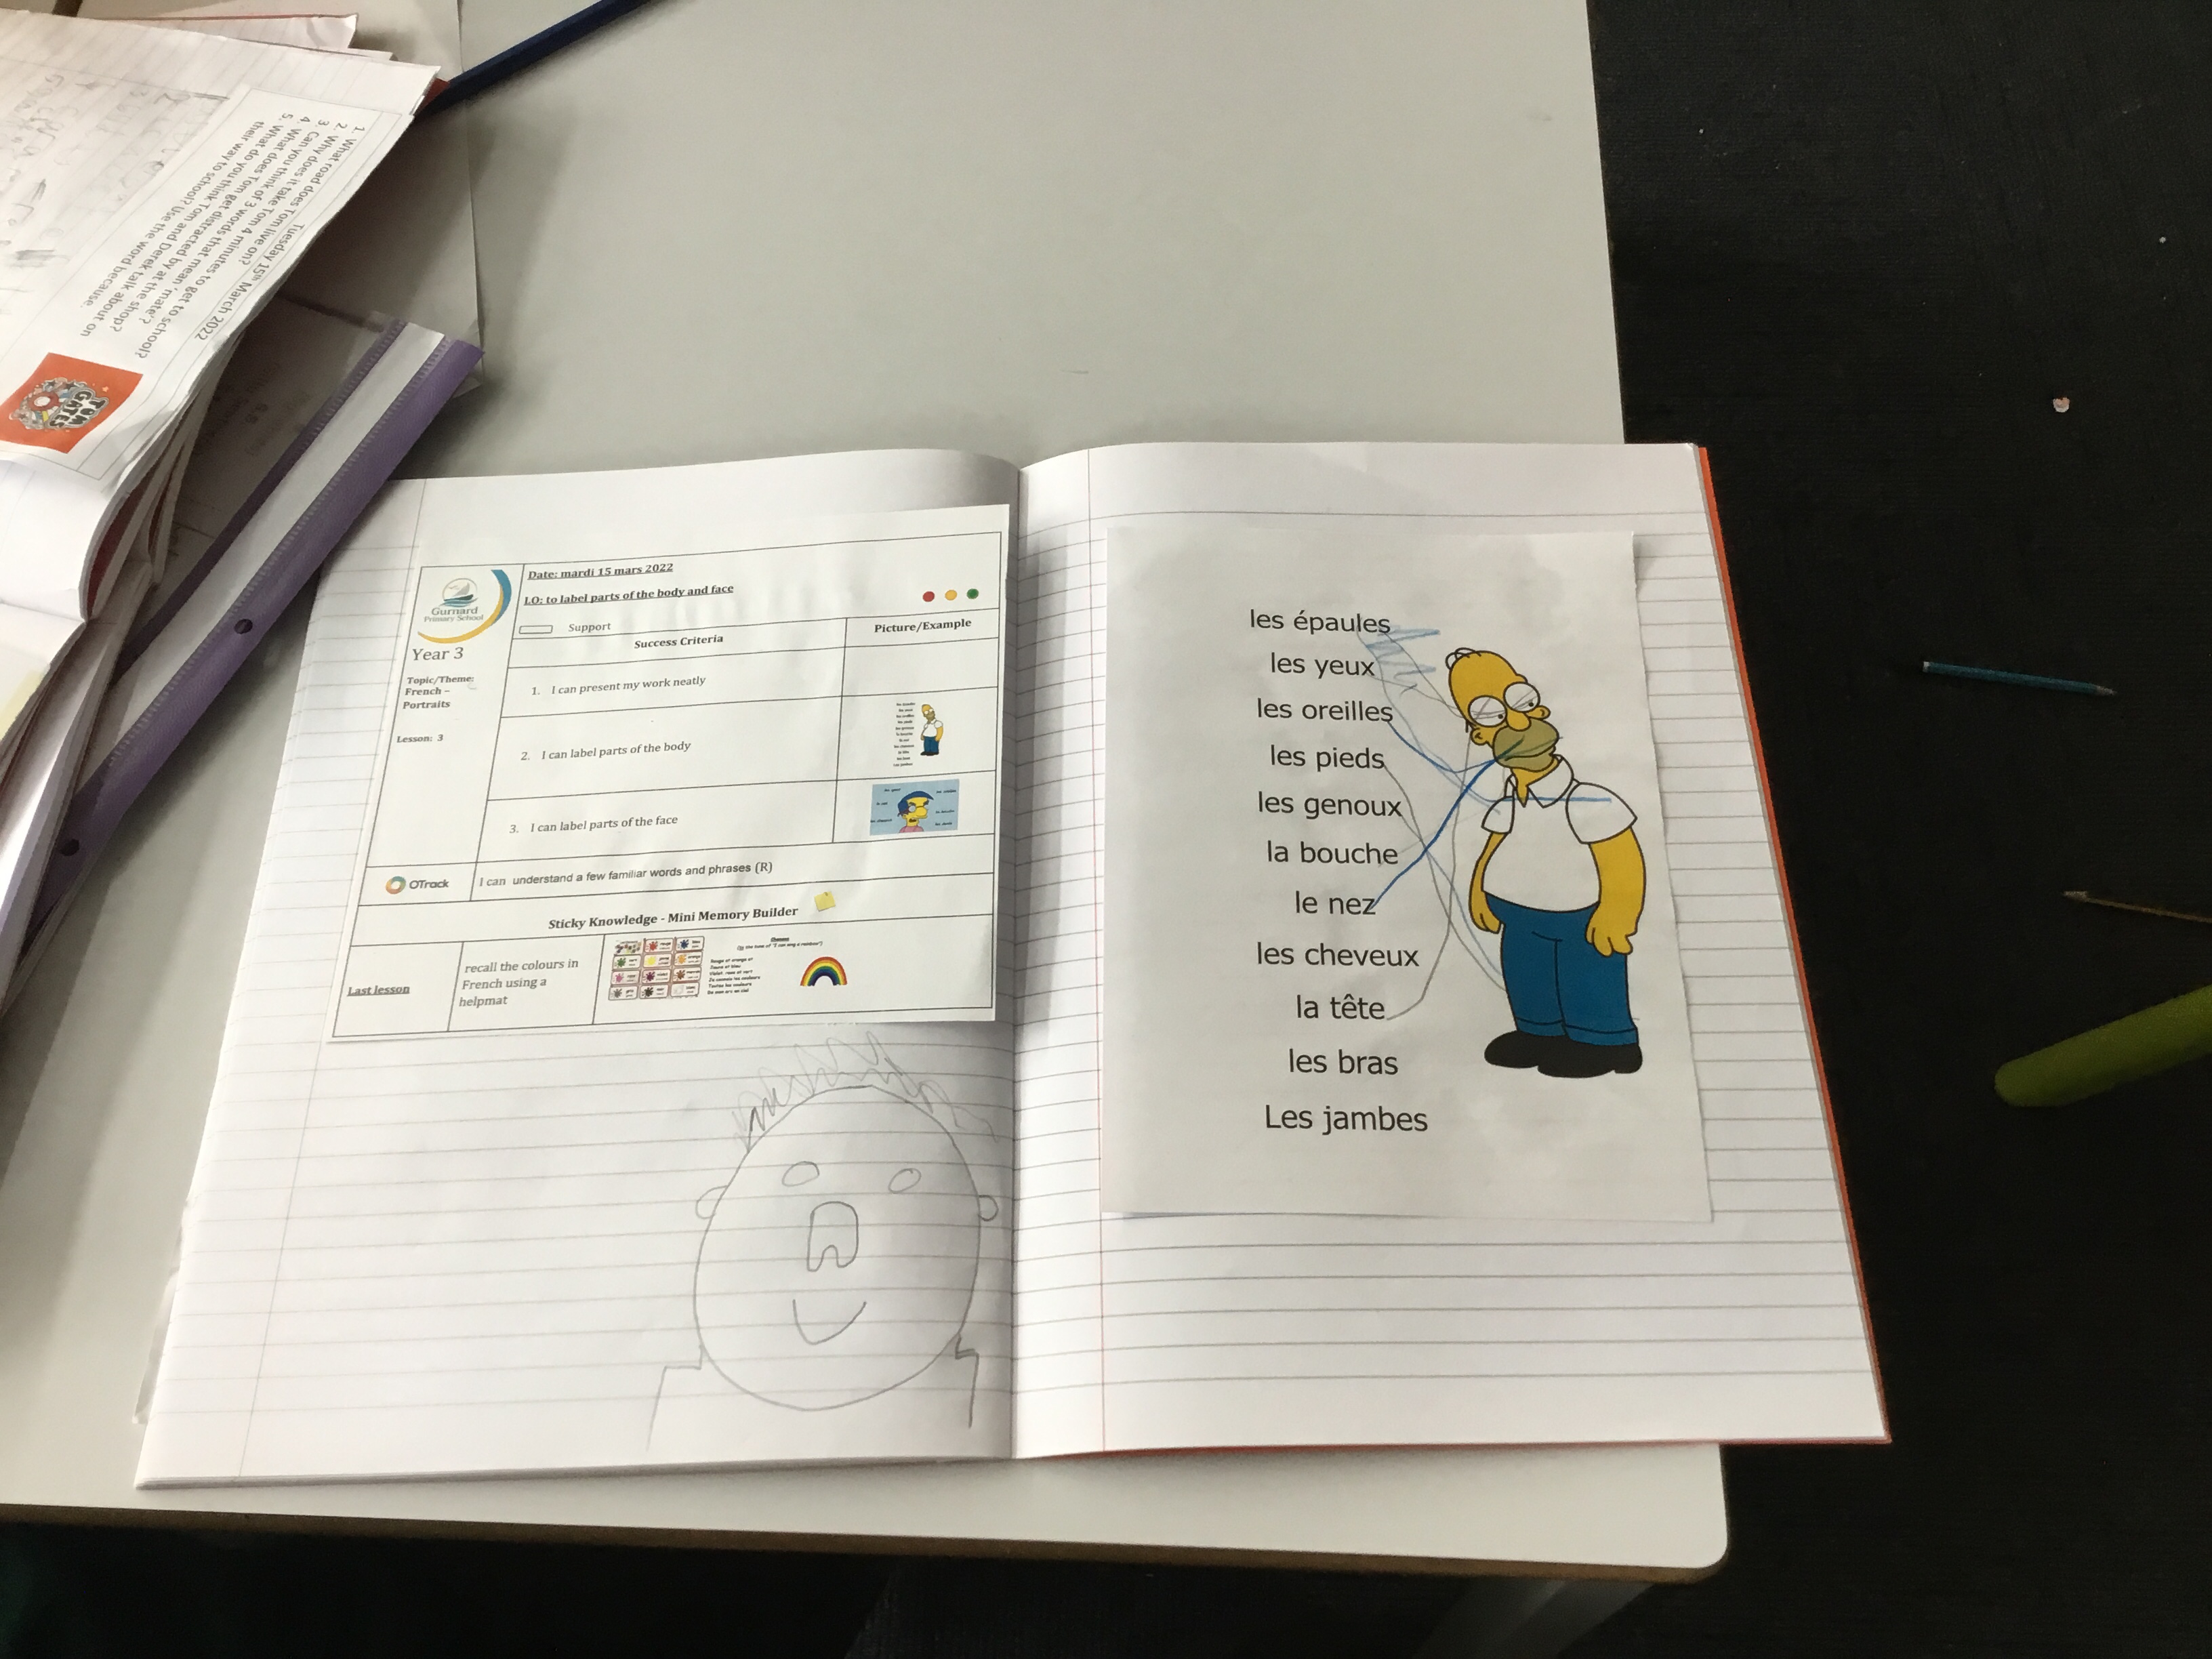 Tuesday 15th March 2022
1. What road does Tom live on?
2. Why does it take Tom 4 minutes to get to school?
3. Can you think of 3 words that mean 'mate'?
4. What does Tom get distracted by at the shop?
5. What do you think Tom and Derek talk about on
their way to school? Use the word because.
TOM
GATES
Gurnard
Primary School
Year 3
Topic/Theme:
French –
Portraits
Lesson: 3
Date: mardi 15 mars 2022
LO: to label parts of the body and face
Support
Success Criteria
Picture/Example
1. I can present my work neatly
2. I can label parts of the body
3. I can label parts of the face
OTrack
I can understand a few familiar words and phrases (R)
Sticky Knowledge - Mini Memory Builder
Last lesson
recall the colours in
French using a
helpmat
les épaules
les yeux
les oreilles
les pieds
les genoux
la bouche
le nez
les cheveux
la tête
les bras
Les jambes